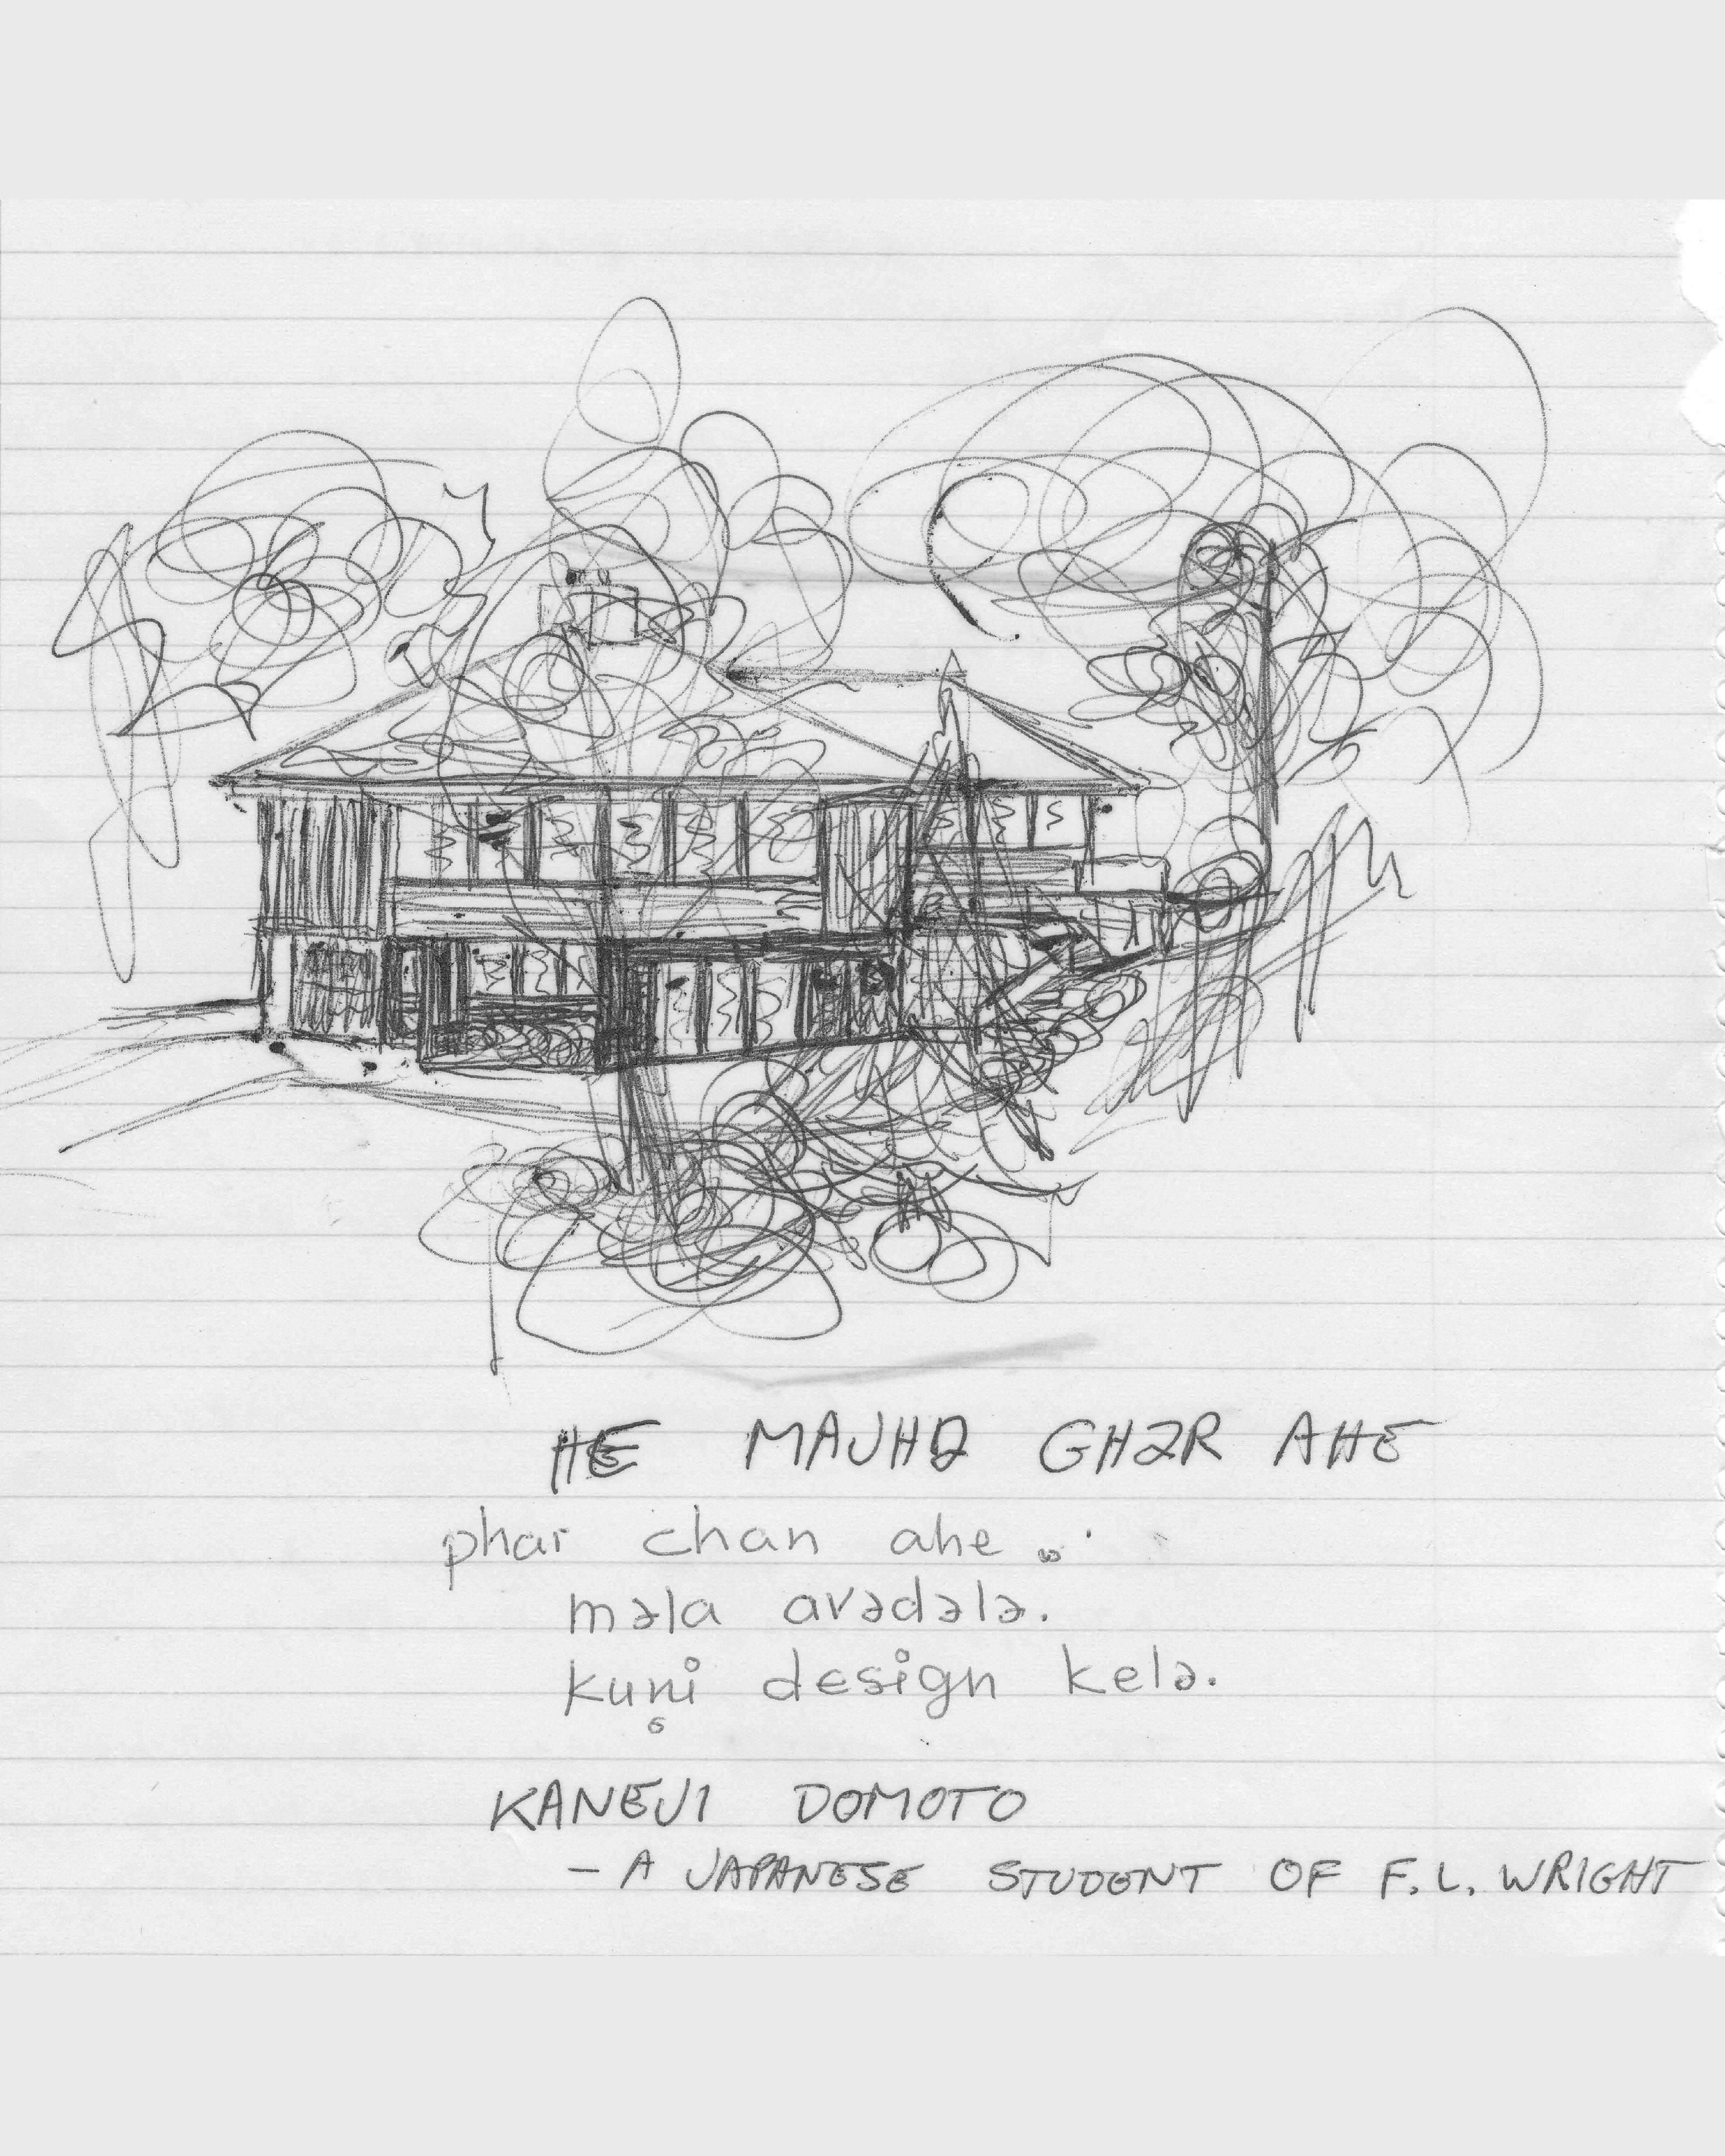 HE MAJHƏ GHƏR AHE
phar chan ahe.
məla avədələ.
kuṇi design kelə.
KANEJI DOMOTO
– A JAPANESE STUDENT OF F.L. WRIGHT